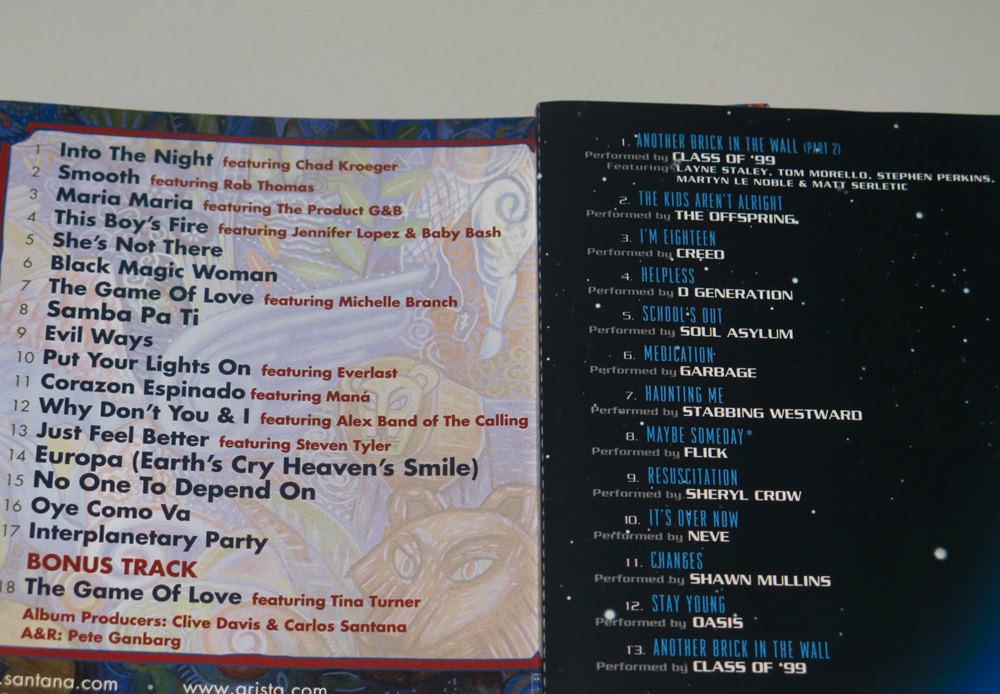 1 Into The Night featuring Chad Kroeger
2 Smooth featuring Rob Thomas
3 Maria Maria featuring The Product G&B
4 This Boy's Fire featuring Jennifer Lopez & Baby Bash
5 She's Not There
6 Black Magic Woman
7 The Game Of Love featuring Michelle Branch
8 Samba Pa Ti
9 Evil Ways
10 Put Your Lights On featuring Everlast
11 Corazon Espinado featuring Maná
12 Why Don't You & I featuring Alex Band of The Calling
13 Just Feel Better featuring Steven Tyler
14 Europa (Earth's Cry Heaven's Smile)
15 No One To Depend On
16 Oye Como Va
17 Interplanetary Party
BONUS TRACK
18 The Game Of Love featuring Tina Turner
Album Producers: Clive Davis & Carlos Santana
A&R: Pete Ganbarg
.santana.com www.arista.com
1. ANOTHER BRICK IN THE WALL (PART 2)
Performed by CLASS OF '99
Featuring LAYNE STALEY, TOM MORELLO, STEPHEN PERKINS,
MARTYN LE NOBLE & MATT SERLETIC
2. THE KIDS AREN'T ALRIGHT
Performed by THE OFFSPRING
3. I'M EIGHTEEN
Performed by CREED
4. HELPLESS
Performed by D GENERATION
5. SCHOOL'S OUT
Performed by SOUL ASYLUM
6. MEDICATION
Performed by GARBAGE
7. HAUNTING ME
Performed by STABBING WESTWARD
8. MAYBE SOMEDAY*
Performed by FLICK
9. RESUSCITATION
Performed by SHERYL CROW
10. IT'S OVER NOW
Performed by NEVE
11. CHANGES
Performed by SHAWN MULLINS
12. STAY YOUNG
Performed by OASIS
13. ANOTHER BRICK IN THE WALL
Performed by CLASS OF '99